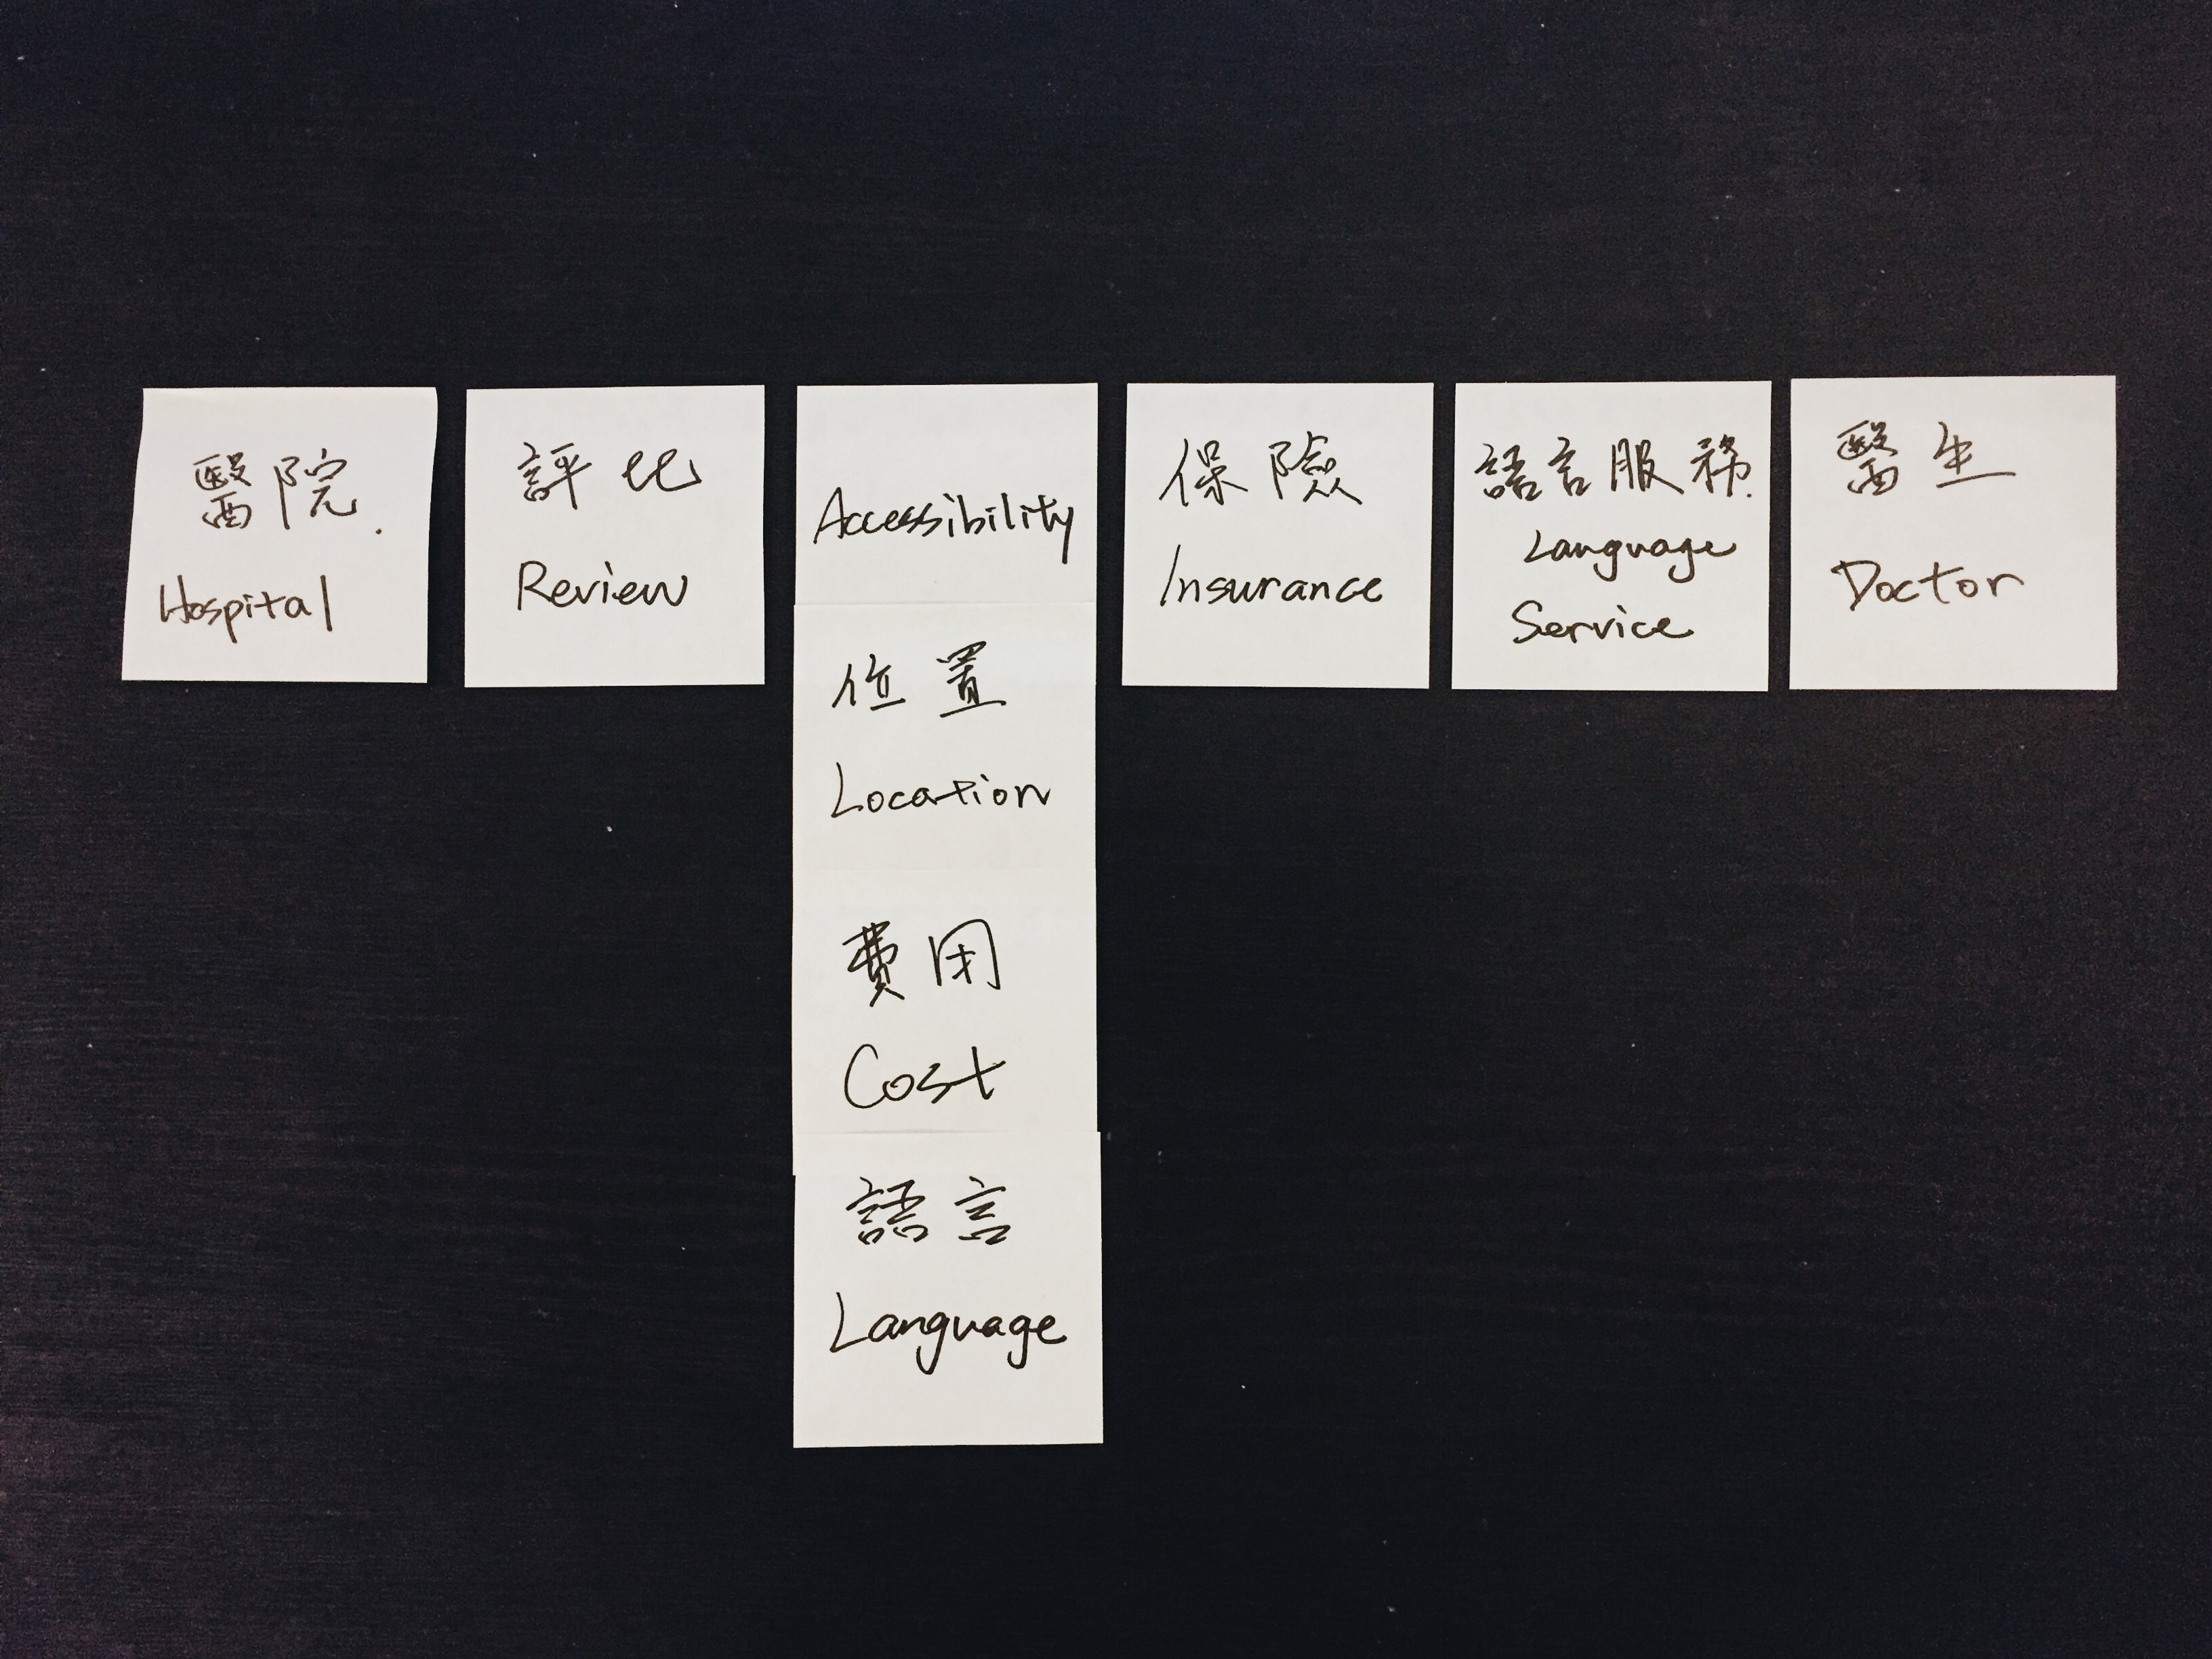 醫院.
Hospital
評比
Review
Accessibility
位置
Location
費用
Cost
語言
Language
保險
Insurance
語言服務.
Language
Service
醫生
Doctor